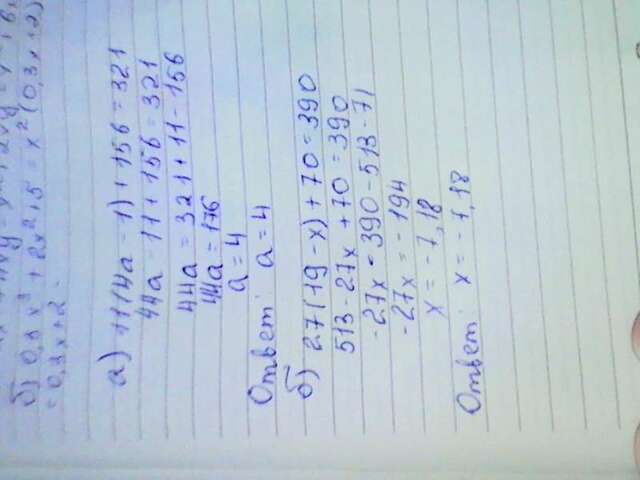 б) 0,3x³ + 2x² + 5 = x² (0,3x + 2)
= 0,3x + 2
а) 11(4a - 1) + 156 = 321
44a - 11 + 156 = 321
44a = 321 + 11 - 156
44a = 176
a = 4
Ответ: a = 4
б) 27(19 - x) + 70 = 390
513 - 27x + 70 = 390
-27x = 390 - 513 - 71
-27x = - 194
x = - 7,18
Ответ: x = - 7,18